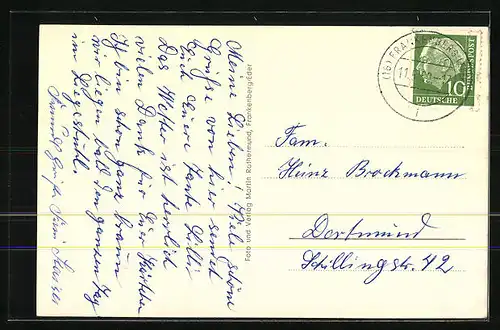 Meine Lieben! Viele schöne
Grüße von hier sendet
Euch Eure Tante Lilli
Das Wetter ist herrlich
vielen Dank für die Karten
Ich bin schon ganz braun
wir liegen bald den ganzen Tag
im Liegestuhl.
Foto und Verlag Martin Rothermund, Frankenberg/Eder
DEUTSCHE
10
Fam.
Heinz Brockmann
Dortmund
Schillingstr. 42